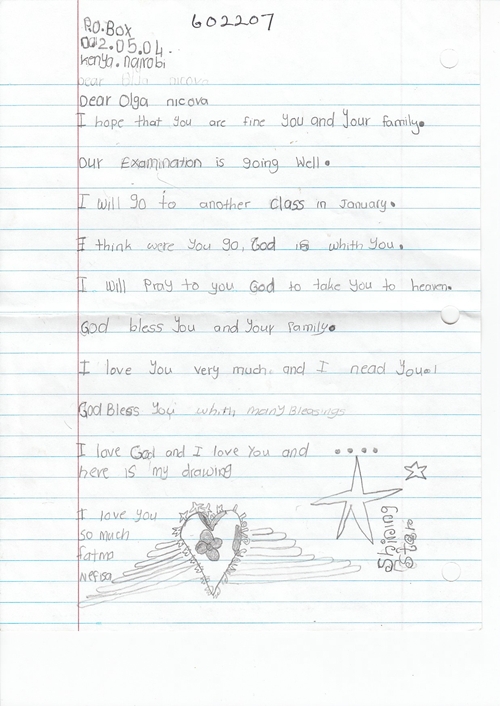 602207
P.O.Box
002.05.04.
Kenya.nairobi
Dear Olga nicova
Dear Olga nicova
I hope that you are fine You and Your family.
Our Examination is going Well.
I will go to another Class in January.
I think were You go, God is whith You.
I will Pray to you God to take You to heaven.
God bless You and Your family.
I love You very much and I nead You!
God Bless You whith many Bleasings
I love God and I love You and
here is my drawing
I love you
so much
fatma
Nefisa
are
Star